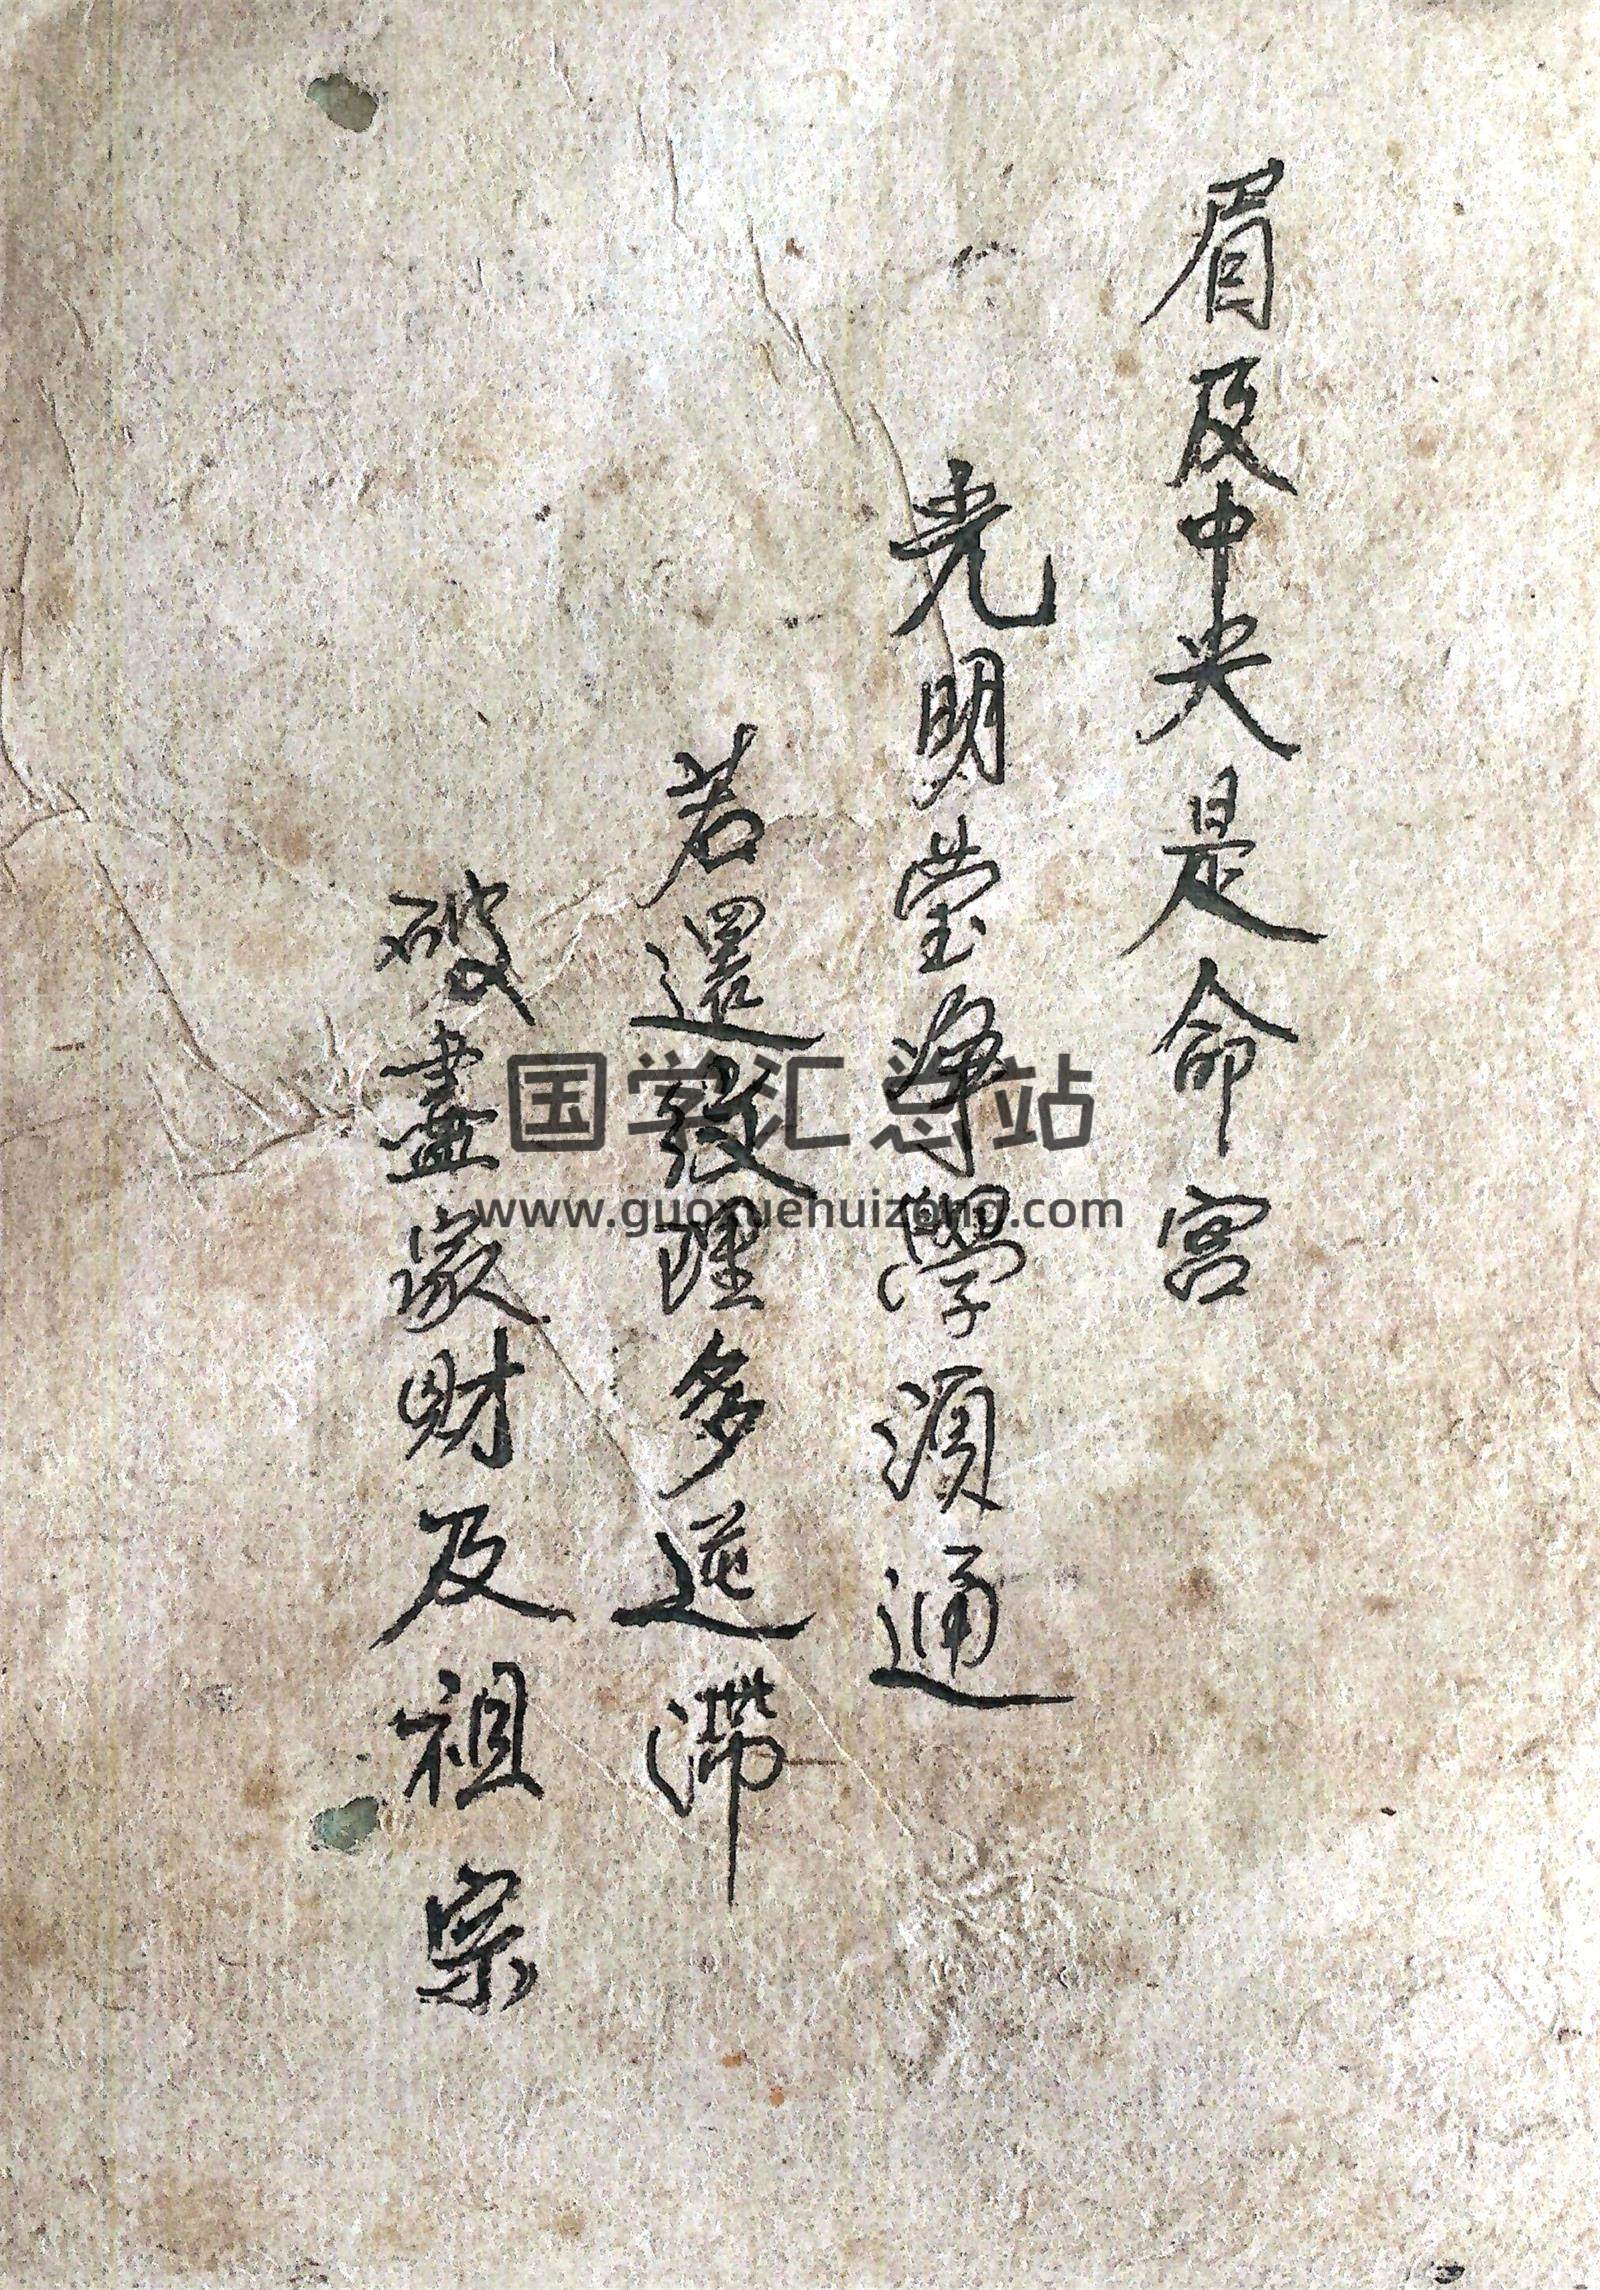 眉及中央是命宮
光明莹净學須通
若還紋理多迍滞
破盡家财及祖宗
国学汇总站
www.guoxuehuizong.com